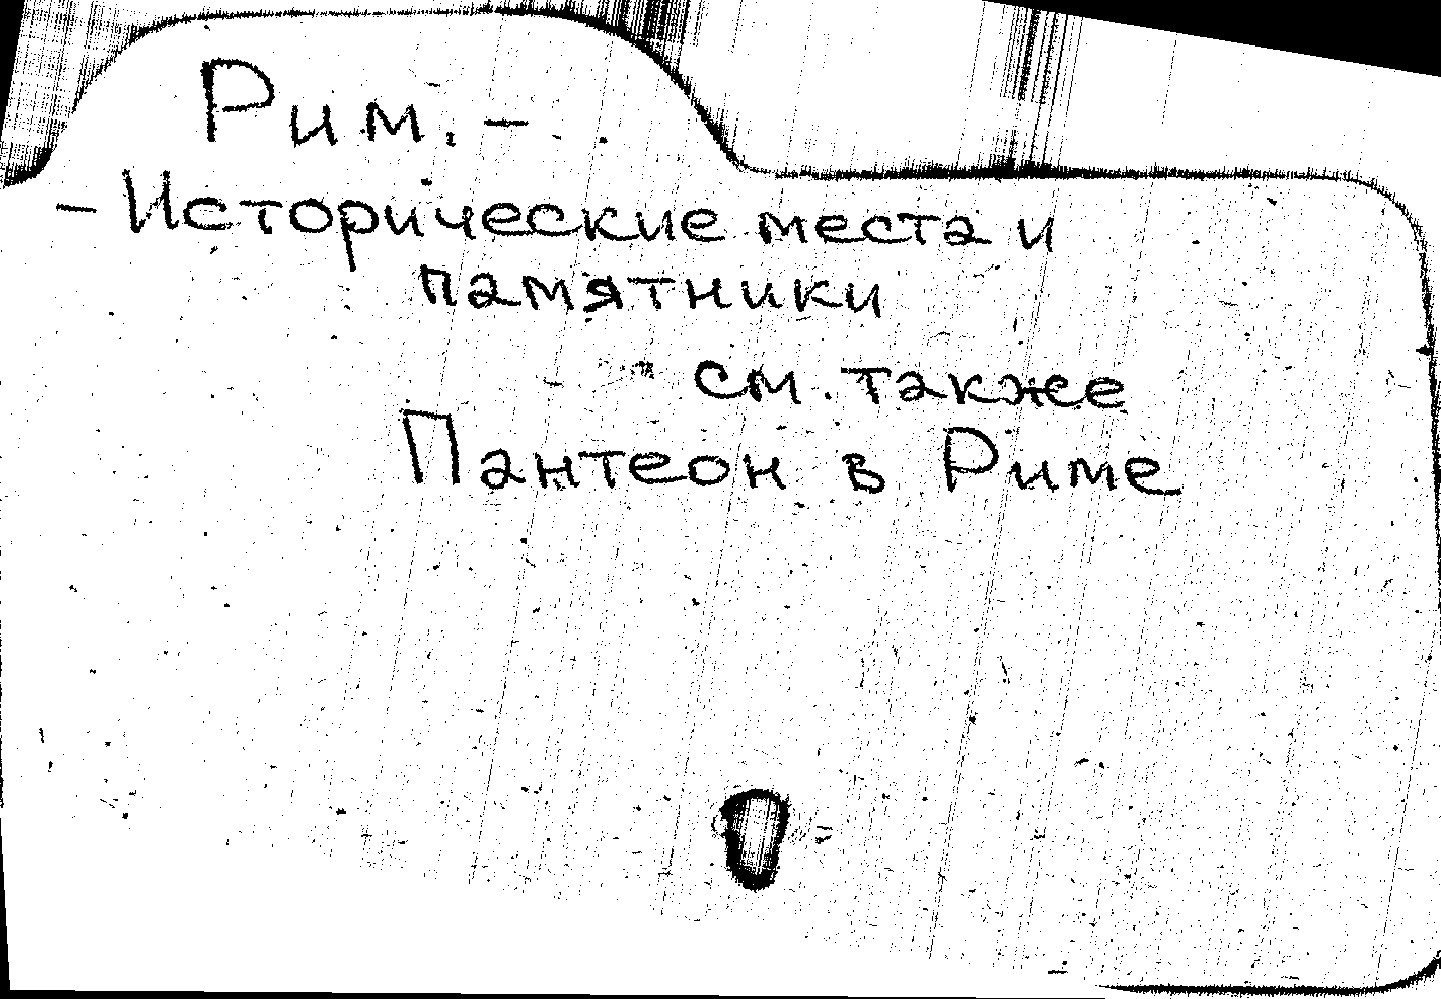 Рим. –
– Исторические места и
памятники
см. также
Пантеон в Риме